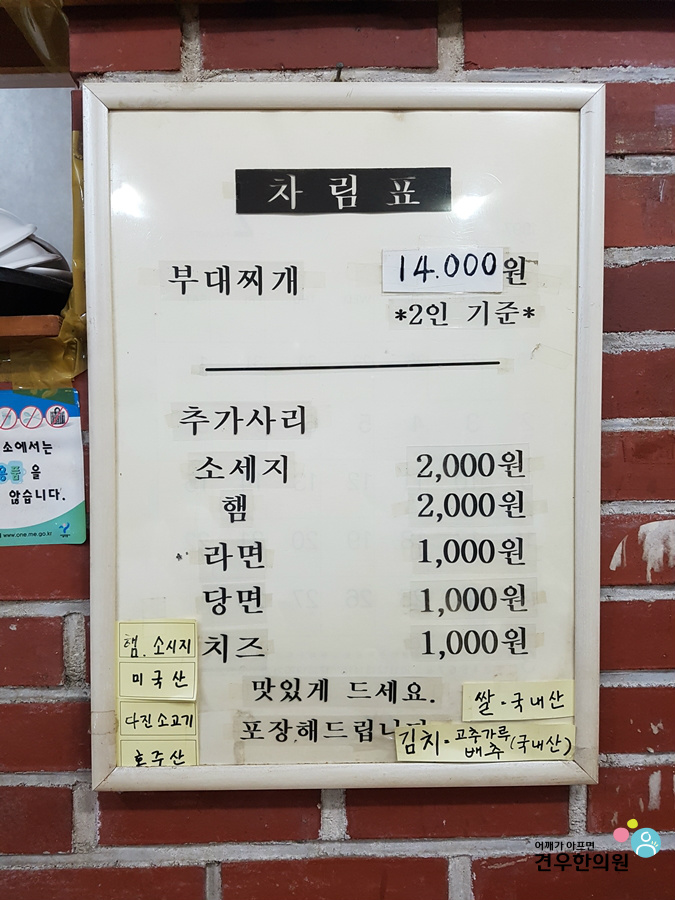 차림표
부대찌개 14.000원
*2인 기준*
추가사리
소세지 2,000원
햄 2,000원
라면 1,000원
당면 1,000원
치즈 1,000원
맛있게 드세요.
포장해드립니다
햄. 소시지
미국산
다진소고기
호주산
쌀·국내산
김치·고추가루 배추(국내산)
소에서는
용품을
않습니다.
www.one.me.go.kr
어깨가 아프면
견우한의원